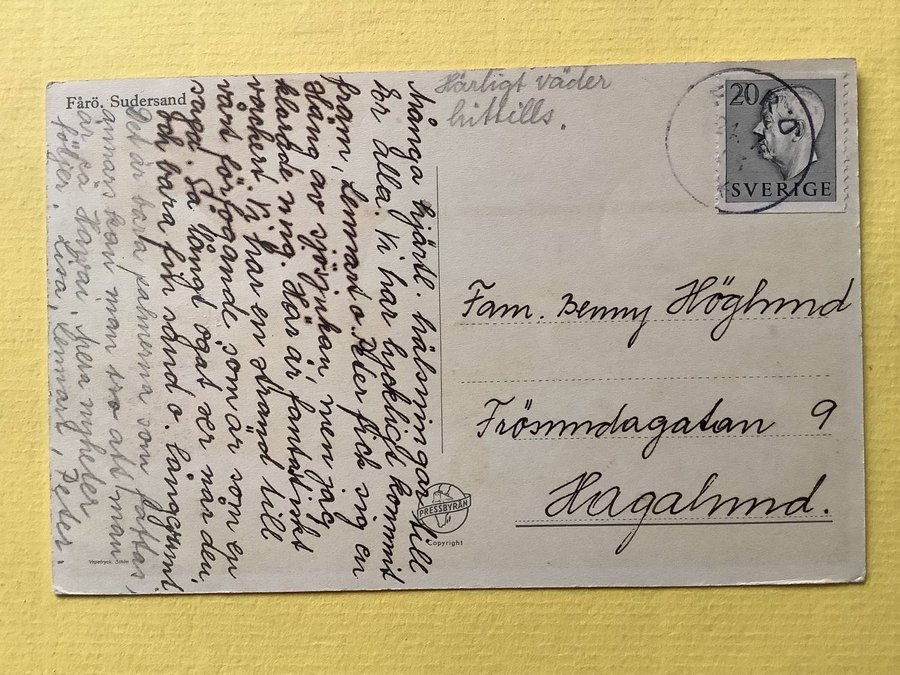 Fårö. Sudersand
Härligt väder
hittills.
20
SVERIGE
Många hjärtl. hälsningar till
Er alla. Vi har lyckligt kommit
fram, Lennart o. Peter fick sig en
släng av sjösjukan, men jag
klarade mig. Här är fantastiskt
vackert, vi har en strand till
vårt förfogande, som är som en
saga. Så långt ögat ser når den,
och bara fin sand o. långgrunt.
Det är bara palmerna som fattas,
annars kan man tro att man
är på Hawai. Flera nyheter
följer. Lisa, Lennart, Peter.
Fam. Benny Höglund
Frösundagatan 9
Hagalund.
PRESSBYRÅN
Copyright